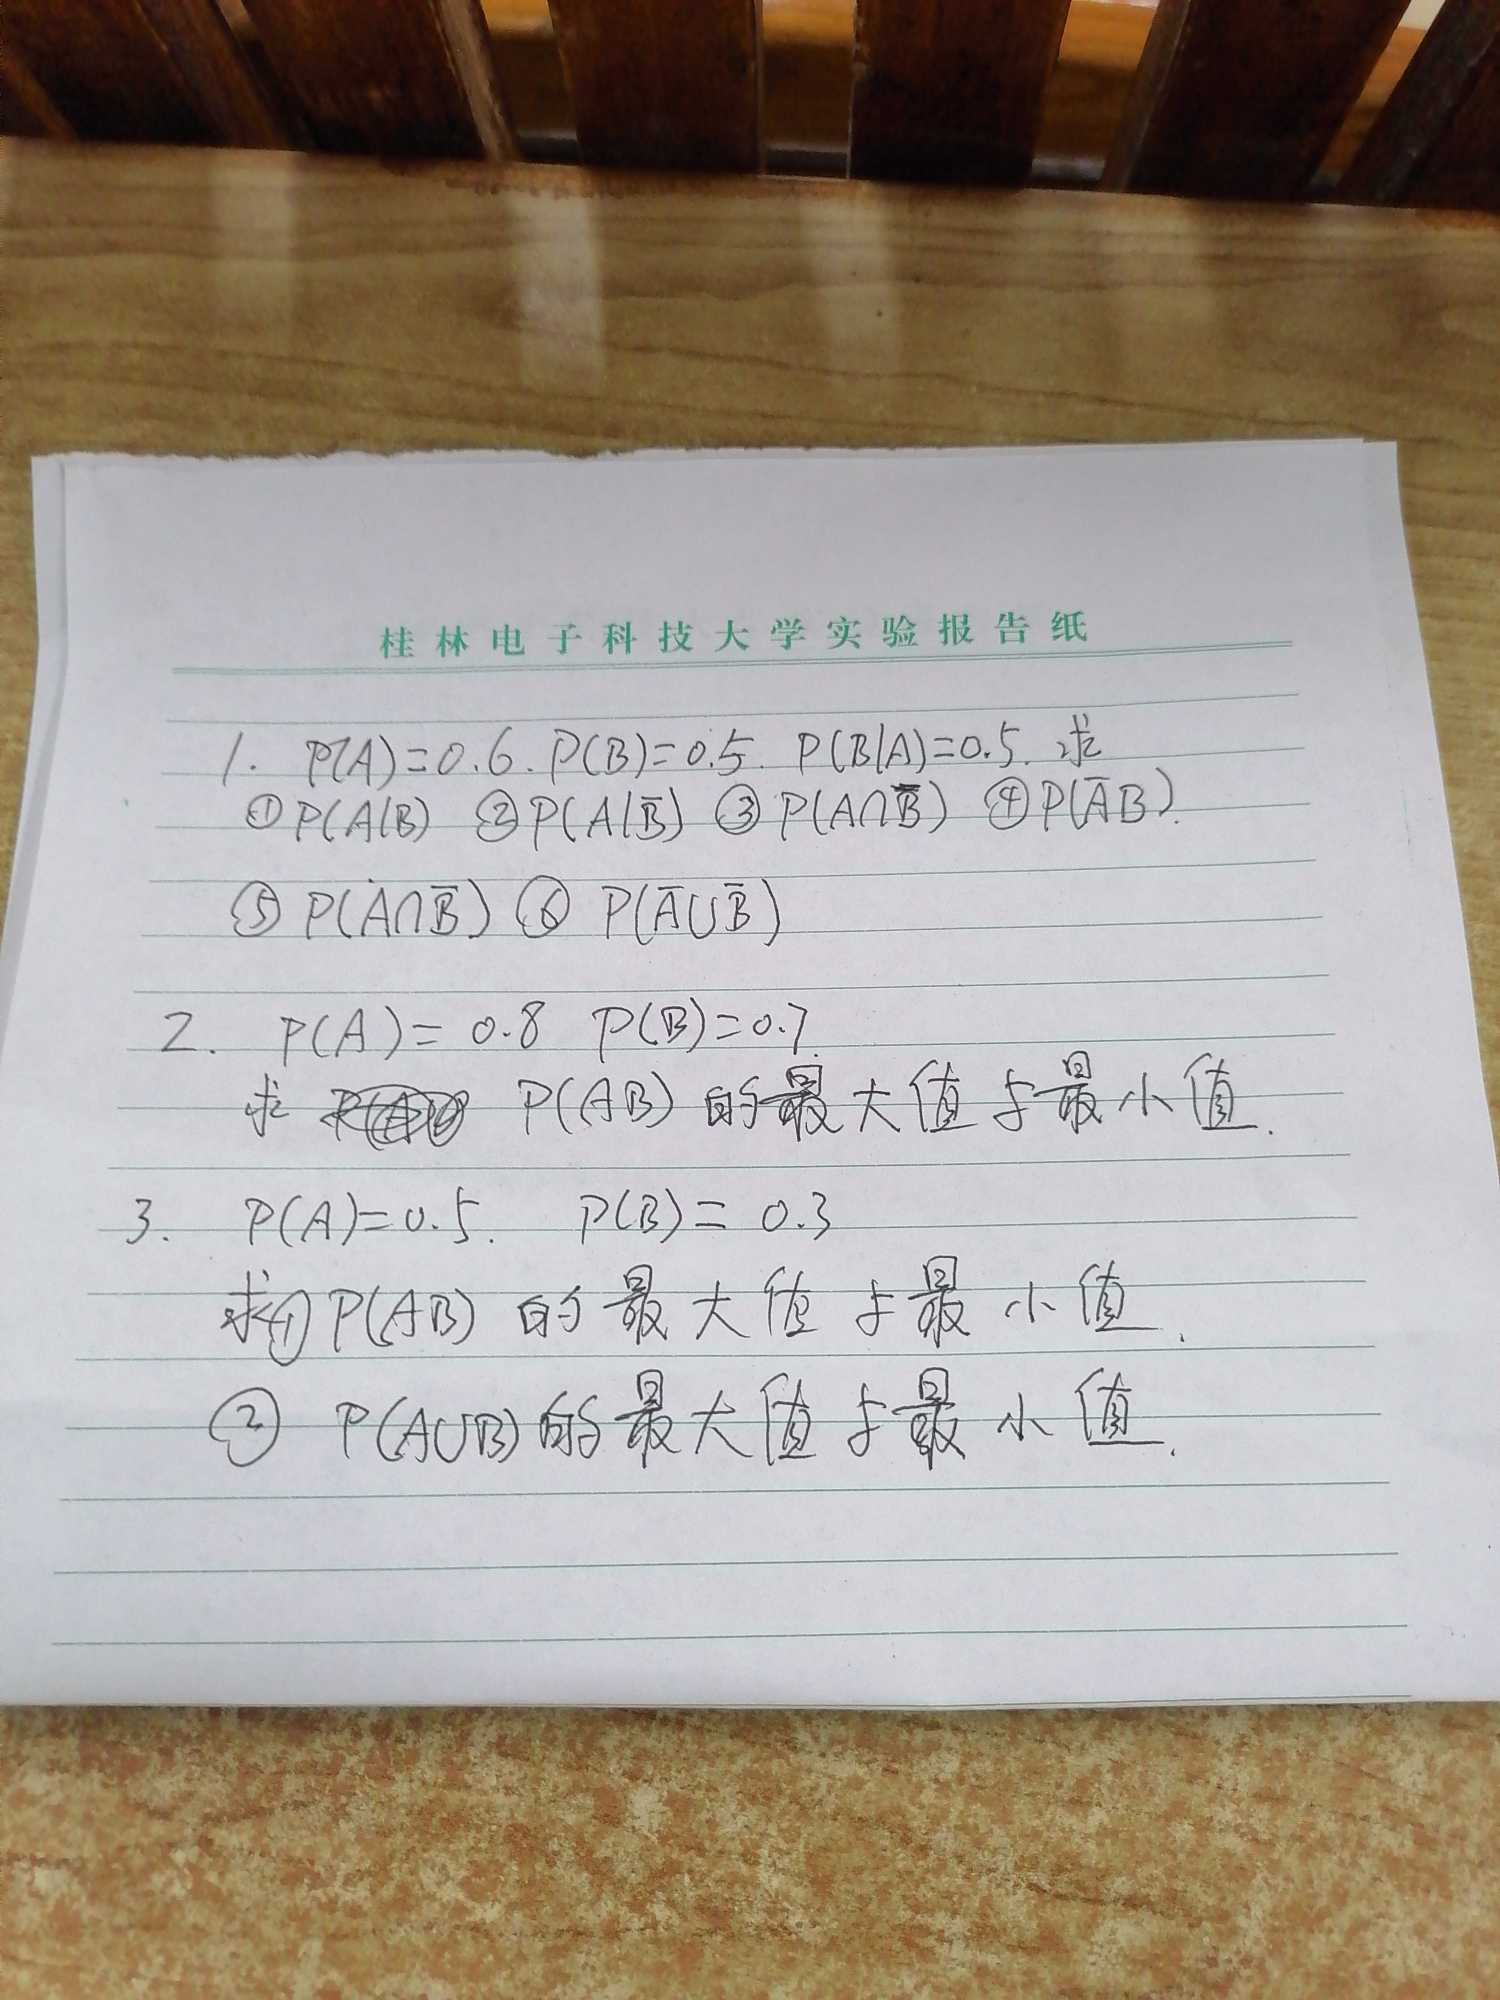 桂林电子科技大学实验报告纸
1. P(A)=0.6. P(B)=0.5. P(B|A)=0.5. 求
①P(A|B) ②P(A|B̅) ③P(A∩B̅) ④P(A̅B).
⑤P(A∩B̅) ⑥ P(A̅∪B̅)
2. P(A)=0.8 P(B)=0.7.
求 P(AB)的最大值与最小值.
3. P(A)=0.5. P(B)=0.3
求①P(AB)的最大值与最小值.
② P(A∪B)的最大值与最小值.